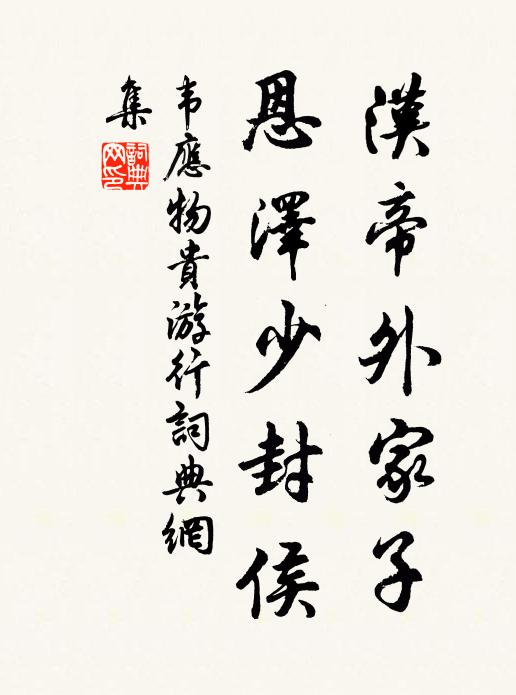 漢帝外家子
恩澤少封侯
韦應物貴游行詞典網
集
詞典
网印